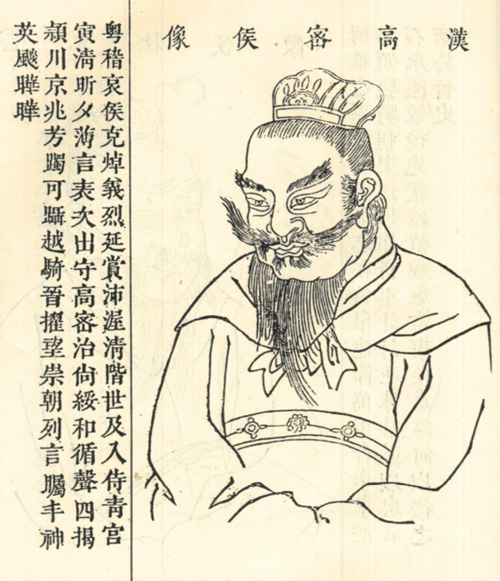 漢高密侯像
粤稽哀侯克焯義烈延賞沛渥清階世及入侍青宮
寅清昕夕薄言表次出守高密治尙綏和循聲四揭
潁川京兆芳躅可躡越騎晉擢望崇朝列言矚丰神
英飈曄曄